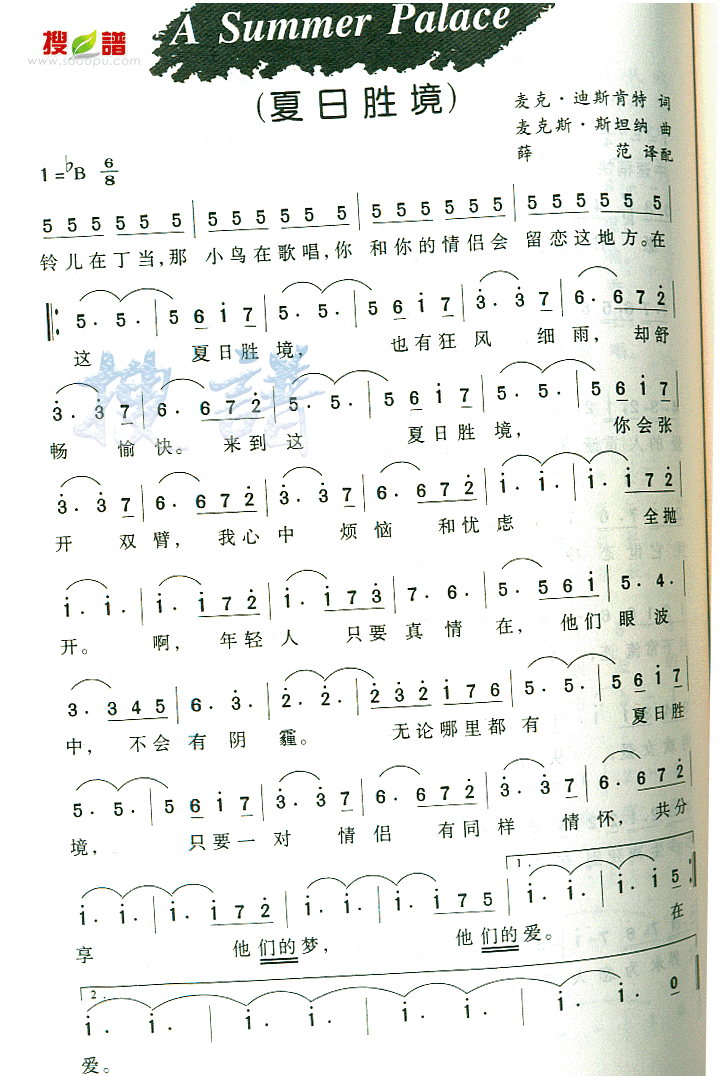 搜譜
www.sooopu.com
A Summer Palace
(夏日胜境)
麦克·迪斯肯特 词
麦克斯·斯坦纳 曲
薛 范 译配
1=♭B 6/8
5 5 5 5 5 5 | 5 5 5 5 5 5 | 5 5 5 5 5 5 | 5 5 5 5 5 5
铃儿在丁当,那 小鸟在歌唱,你 和你的情侣会 留恋这地方。在
‖: 5. 5. | 5 6 i 7 | 5. 5. | 5 6 i 7 | 3. 3 7 | 6. 6 7 2
这 夏日胜境, 也有狂风 细雨, 却舒
3. 3 7 | 6. 6 7 2 | 5. 5. | 5 6 i 7 | 5. 5. | 5 6 i 7
畅 愉快。来到这 夏日胜境, 你会张
3. 3 7 | 6. 6 7 2 | 3. 3 7 | 6. 6 7 2 | i. i. | i. i 7 2
开 双臂, 我心中 烦恼 和忧虑 全抛
i. i. | i. i 7 2 | i. i 7 3 | 7. 6. | 5. 5 6 i | 5. 4.
开。 啊, 年轻人 只要真情在, 他们眼波
3. 3 4 5 | 6. 3. | 2. 2. | 2 3 2 i 7 6 | 5. 5. | 5 6 i 7
中, 不会有阴霾。 无论哪里都有 夏日胜
5. 5. | 5 6 i 7 | 3. 3 7 | 6. 6 7 2 | 3. 3 7 | 6. 6 7 2
境, 只要一对 情侣 有同样 情怀, 共分
i. i. | i. i 7 2 | i. i. | i. i 7 5 | 1. i. i. | i. i 5 :‖
享 他们的梦, 他们的爱。 在
2. i. i. | i. i. | i. i. | i. i. | i. i. | i. i 0
爱。